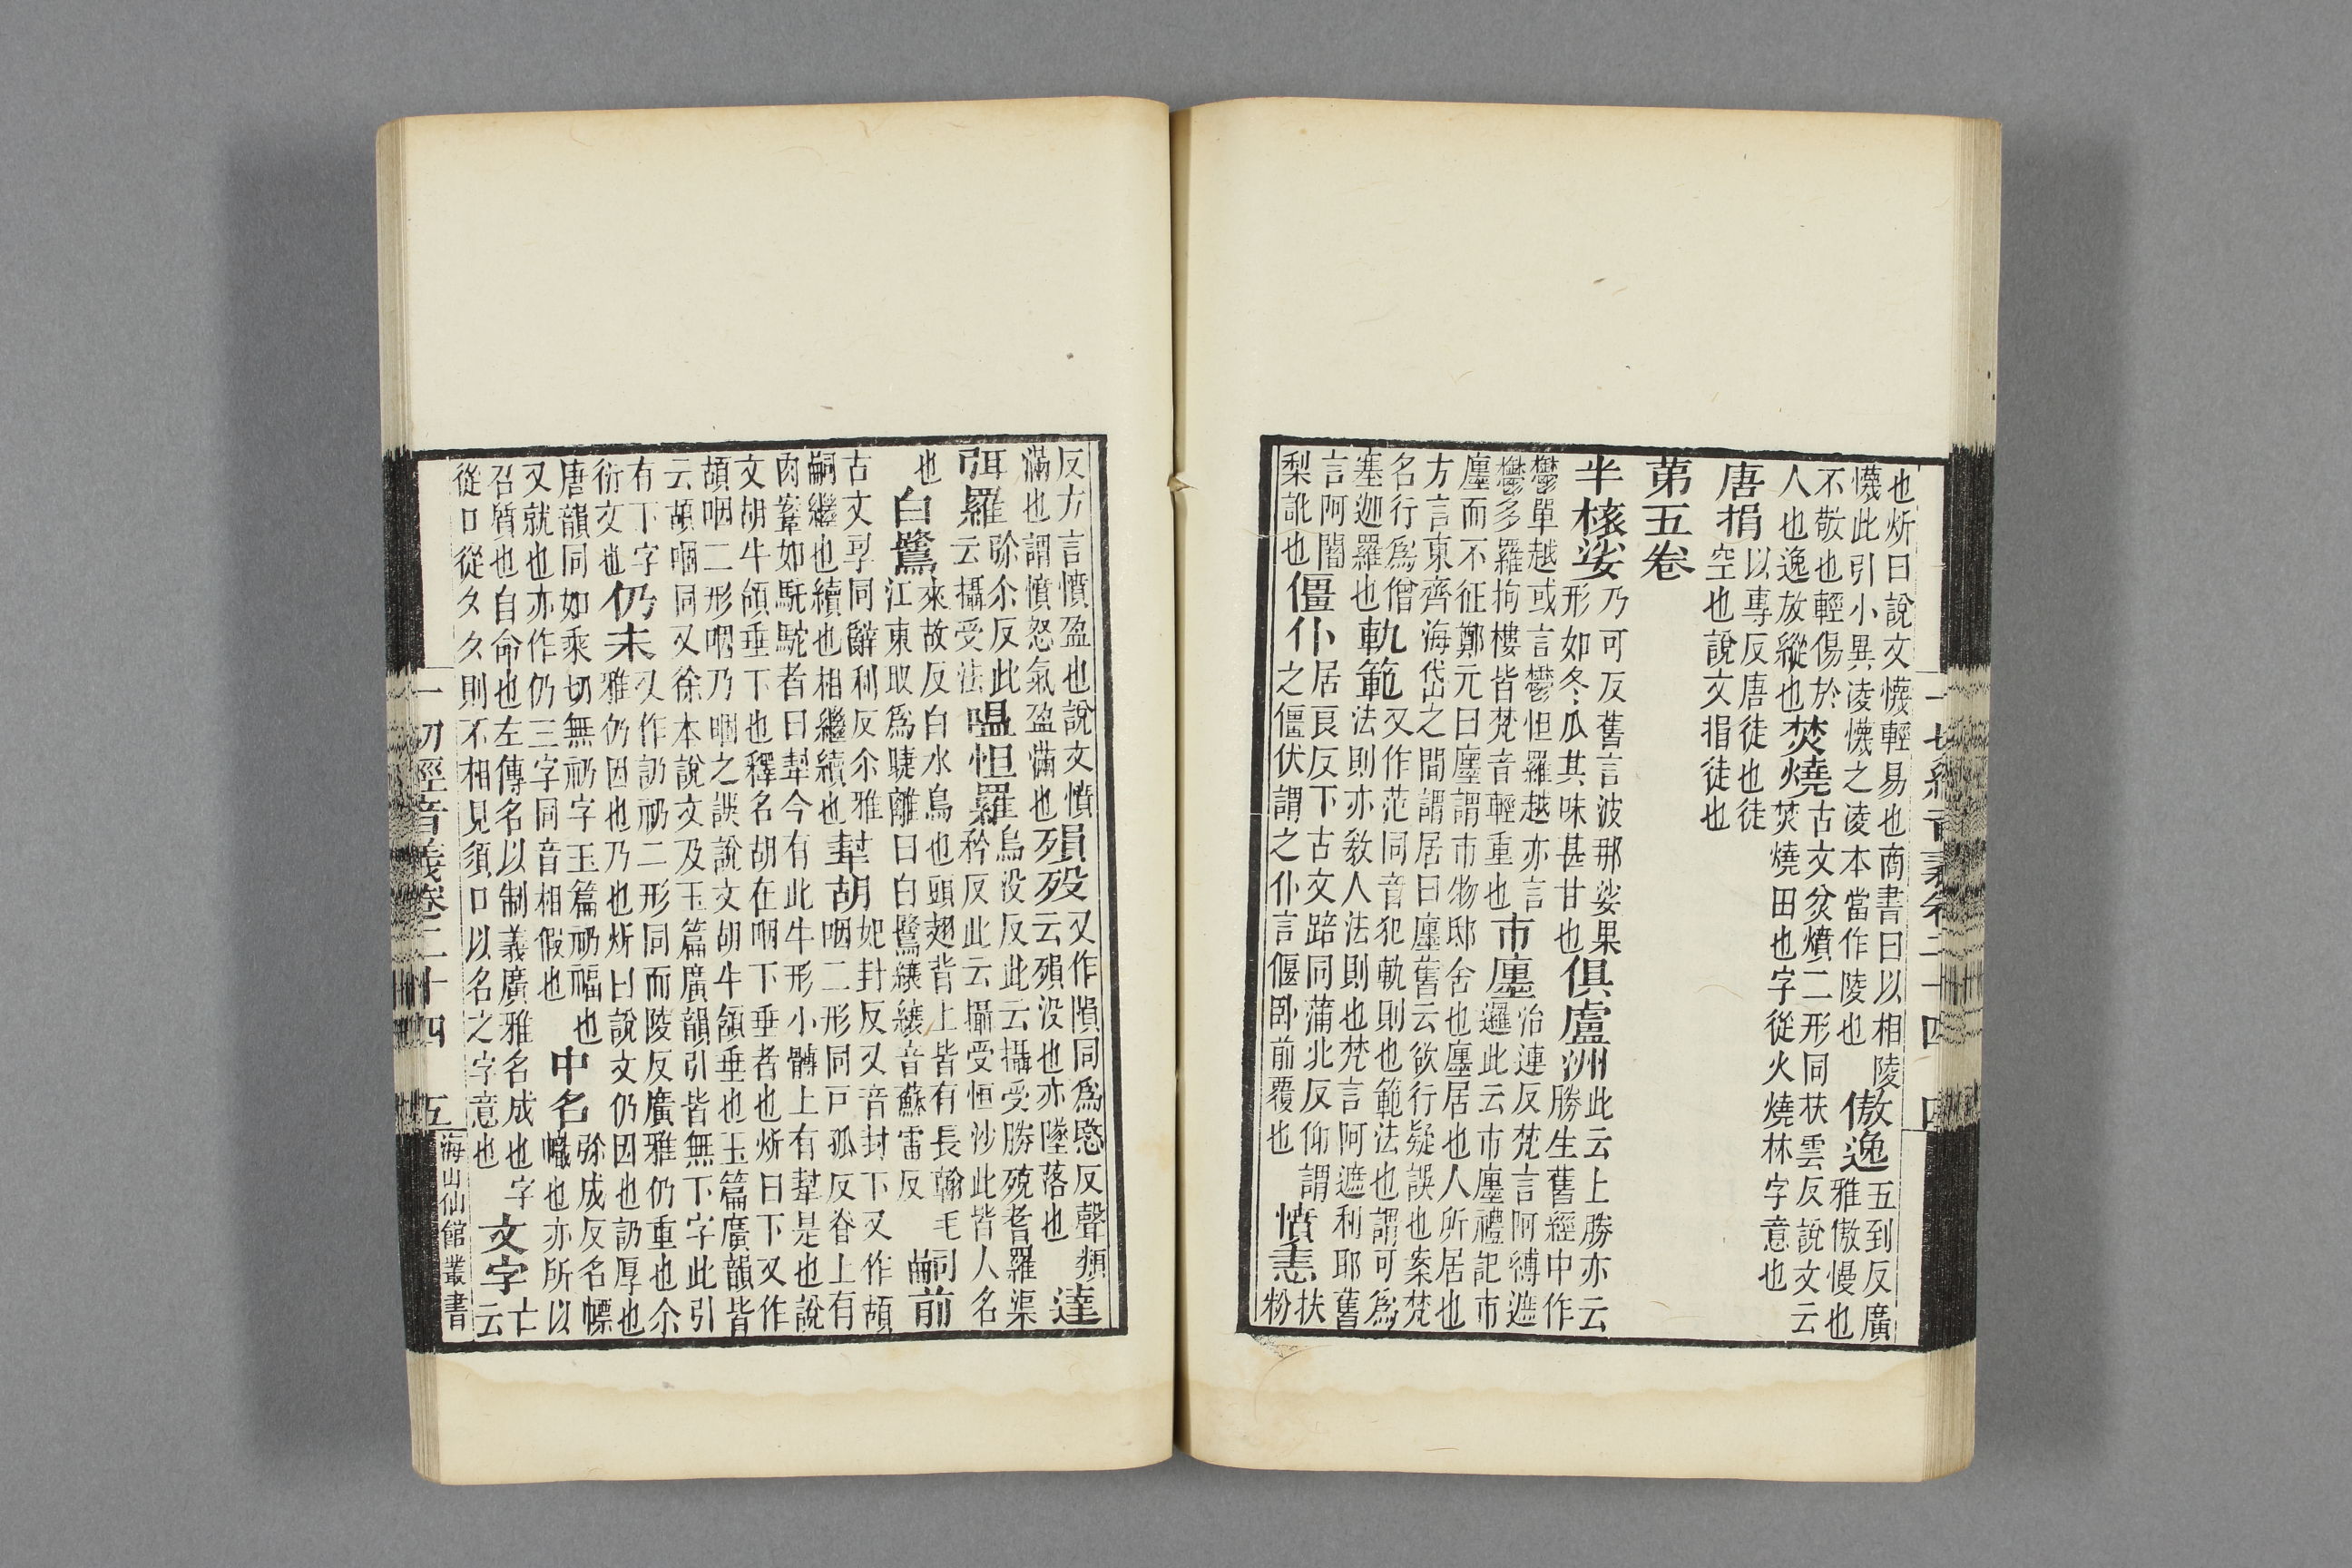 也炘曰說文懱輕易也商書曰以相陵
懱此引小異凌懱之凌本當作陵也
傲逸
五到反廣
雅傲慢也
不敬也輕傷於
人也逸放縱也
焚燒
古文炃燌二形同扶雲反說文云
焚燒田也字從火燒林字意也
唐捐
以專反唐徒也徒
空也說文捐徒也
第五卷
半核娑
乃可反舊言波那娑果
形如冬瓜其味甚甘也
俱盧洲
此云上勝亦云
勝生舊經中作
鬱單越或言鬱怛羅越亦言
鬱多羅拘樓皆梵音輕重也
市廛
治連反梵言阿縛遮
邏此云市廛禮記市
廛而不征鄭元曰廛謂市物邸舍也廛居也人所居也
方言東齊海岱之間謂居曰廛舊云欲行疑誤也案梵
名行爲僧
塞迦羅也
軌範
又作范同音犯軌則也範法也謂可爲
法則亦教人法則也梵言阿遮利耶舊
言阿闍
梨訛也
僵仆
居良反下古文踣同蒲北反仰謂
之僵伏謂之仆言偃卧前覆也
憤恚
扶
粉
一切經音義卷二十四 四
反方言憤盈也說文憤
滿也謂憤怒氣盈滿也
殞歿
又作隕同爲愍反聲類
云殞沒也亦墜落也
達
弭羅
尒反此
云攝受法
嗢怛羅
烏沒反此云攝受勝殑耆羅渠
矜反此云攝受恒沙此皆人名
也
白鷺
來故反白水鳥也頭翅背上皆有長翰毛
江東取爲睫離曰白鷺縗縗音蘇雷反
嗣前
古文孠同辭利反尒雅
嗣繼也續也相繼續也
犎胡
妃封反又音封下又作頡
咽二形同戸孤反脊上有
肉如駞駝者曰犎今有此牛形小髆上有犎是也說
文胡牛頷垂下也釋名胡在咽下垂者也炘曰下又作
頡咽二形咽乃之誤說文胡牛頷垂也玉篇廣韻皆
云頡同又徐本說文及玉篇廣韻引皆無下字此引
有下字
衍文也
仍未
又作訒礽二形同而陵反廣雅仍重也尒
雅仍因也乃也炘曰說文仍因也訒厚也
唐韻同如乘切無礽字玉篇礽福也
又就也亦作仍三字同音相假也
中名
弥成反名幖
幟也亦所以
召質也自命也左傳名以制義廣雅名成也字
從口從夕夕則不相見須口以名之字意也
文字
亡
云
一切經音義卷二十四 五 海山仙館叢書